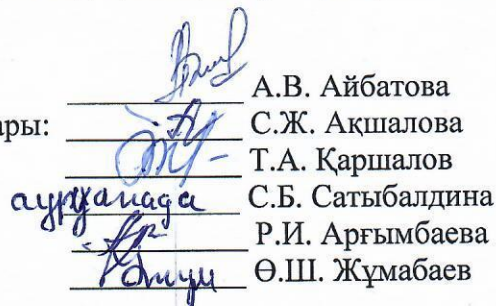 А.В. Айбатова
ары: С.Ж. Ақшалова
Т.А. Қаршалов
ауруханада С.Б. Сатыбалдина
Р.И. Арғымбаева
Ө.Ш. Жұмабаев